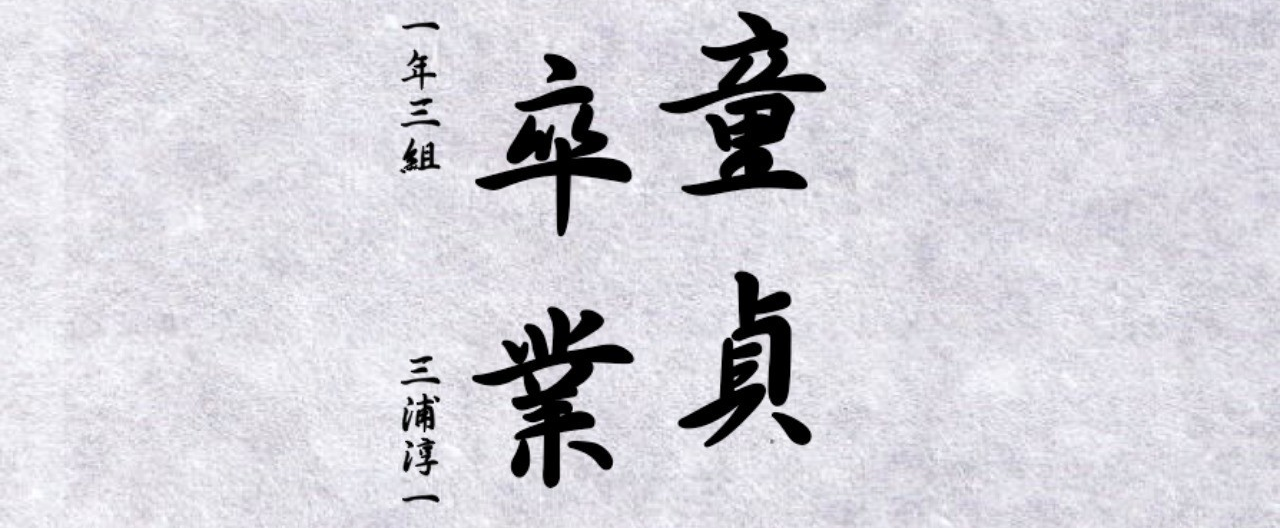 童貞
卒業
一年三組 三浦淳一